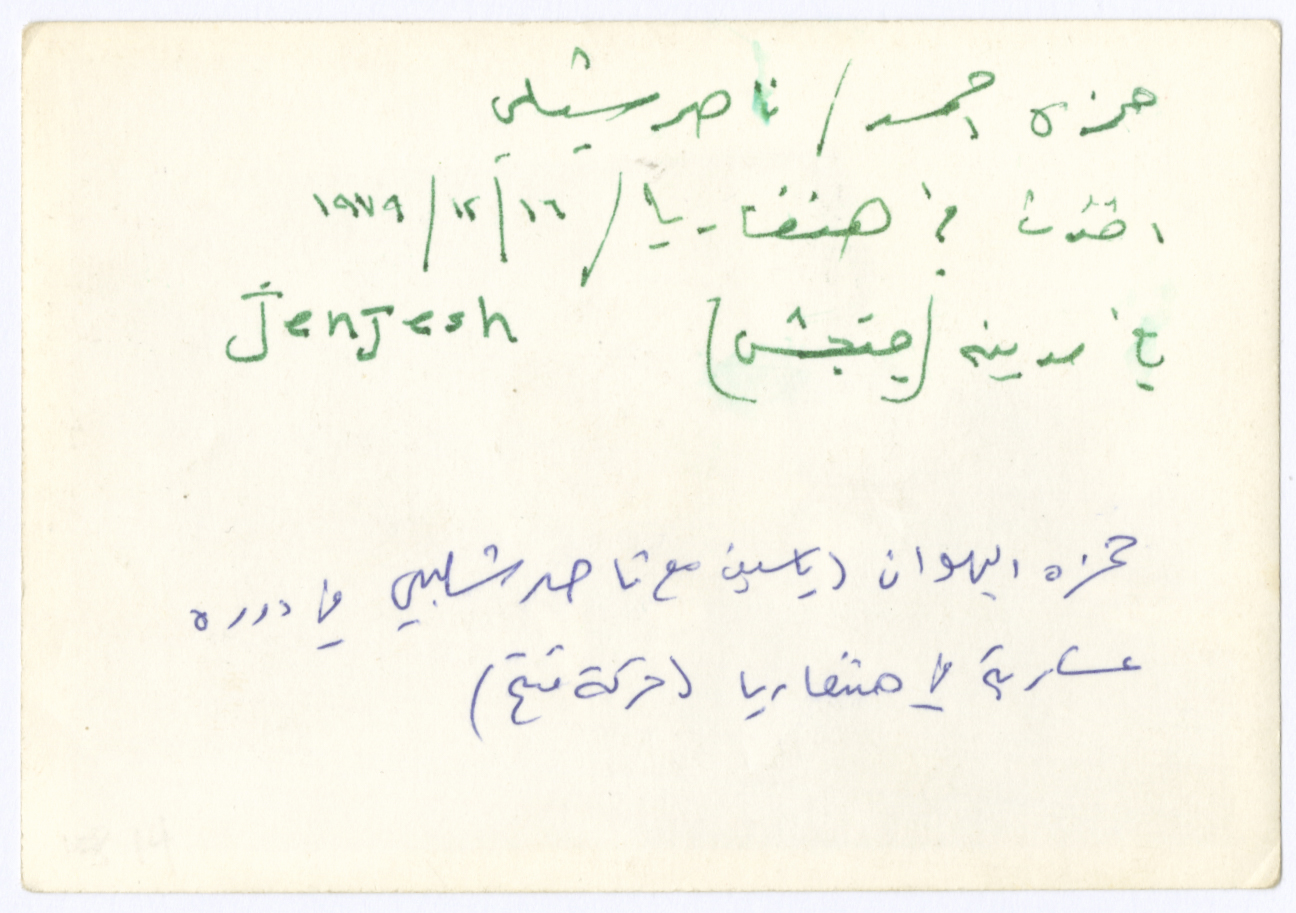 حمزه احمد / ناصر شلبي
اخذت في هنغاريا / ١٦/١٢/١٩٧٩
في مدينه (جنجش) Jenjesh
حمزه البهلوان (ياسين مع ناصر شلبي في دوره
عسكرية في هنغاريا (حركة فتح)